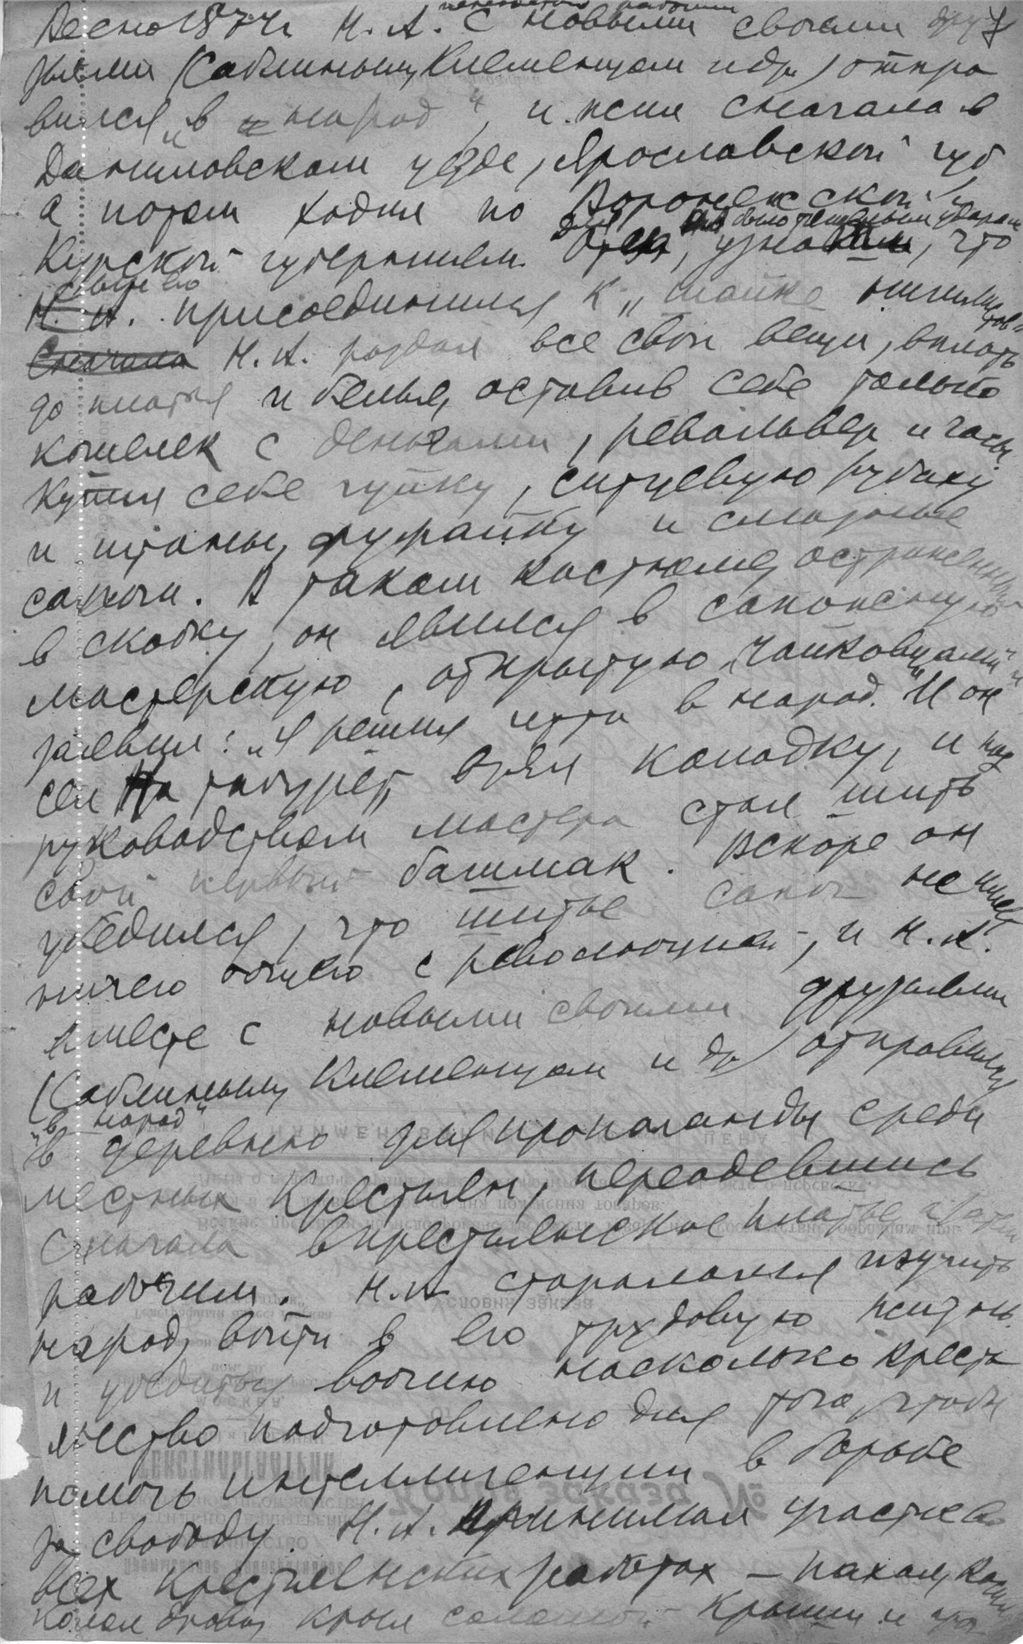 Весной 1874 г Н. А. с новыми своими дру
зьями (Саблиным, Клеменцом и др) отпра
вился „в народ“, и жил сначала в
Даниловском уезде, Ярославской губ
а потом ходил по Воронежской и
Курской губерниям. Для отца было ударом, узнать, что
сын его
Н. А. присоединился к „шайке нигилистов“
Сначала Н. А. раздал все свои вещи, вплоть
до платья и белья, оставив себе только
кошелек с деньгами, револьвер и часы.
Купил себе чуйку, ситцевую рубаху
и штаны, фуражку и смазные
сапоги. В таком костюме, остриженный
в скобку, он явился в сапожную
мастерскую, открытую „чайковцами“
заявил: „Я решил итти в народ.“ И он
сел на табурет, взял колодку, и под
руководством мастера стал шить
свой первый башмак. Вскоре он
убедился, что шитье сапог не имеет
ничего общего с революцией, и Н. А.
вместе с новыми своими друзьями
(Саблиным, Клеменцом и др) отправился
„в народ“
в деревню для пропаганды среди
местных крестьян, переодевшись
сначала в крестьянское платье, а затем
рабочим. Н. А. старался изучить
народ, войти в его трудовую жизнь
и убедиться воочию насколько кресть
янство подготовлено для того, чтобы
помочь интеллигенции в борьбе
за свободу. Н. А. принимал участие в
всех крестьянских работах — пахал, косил
колол дрова, крыл соломой крыши и